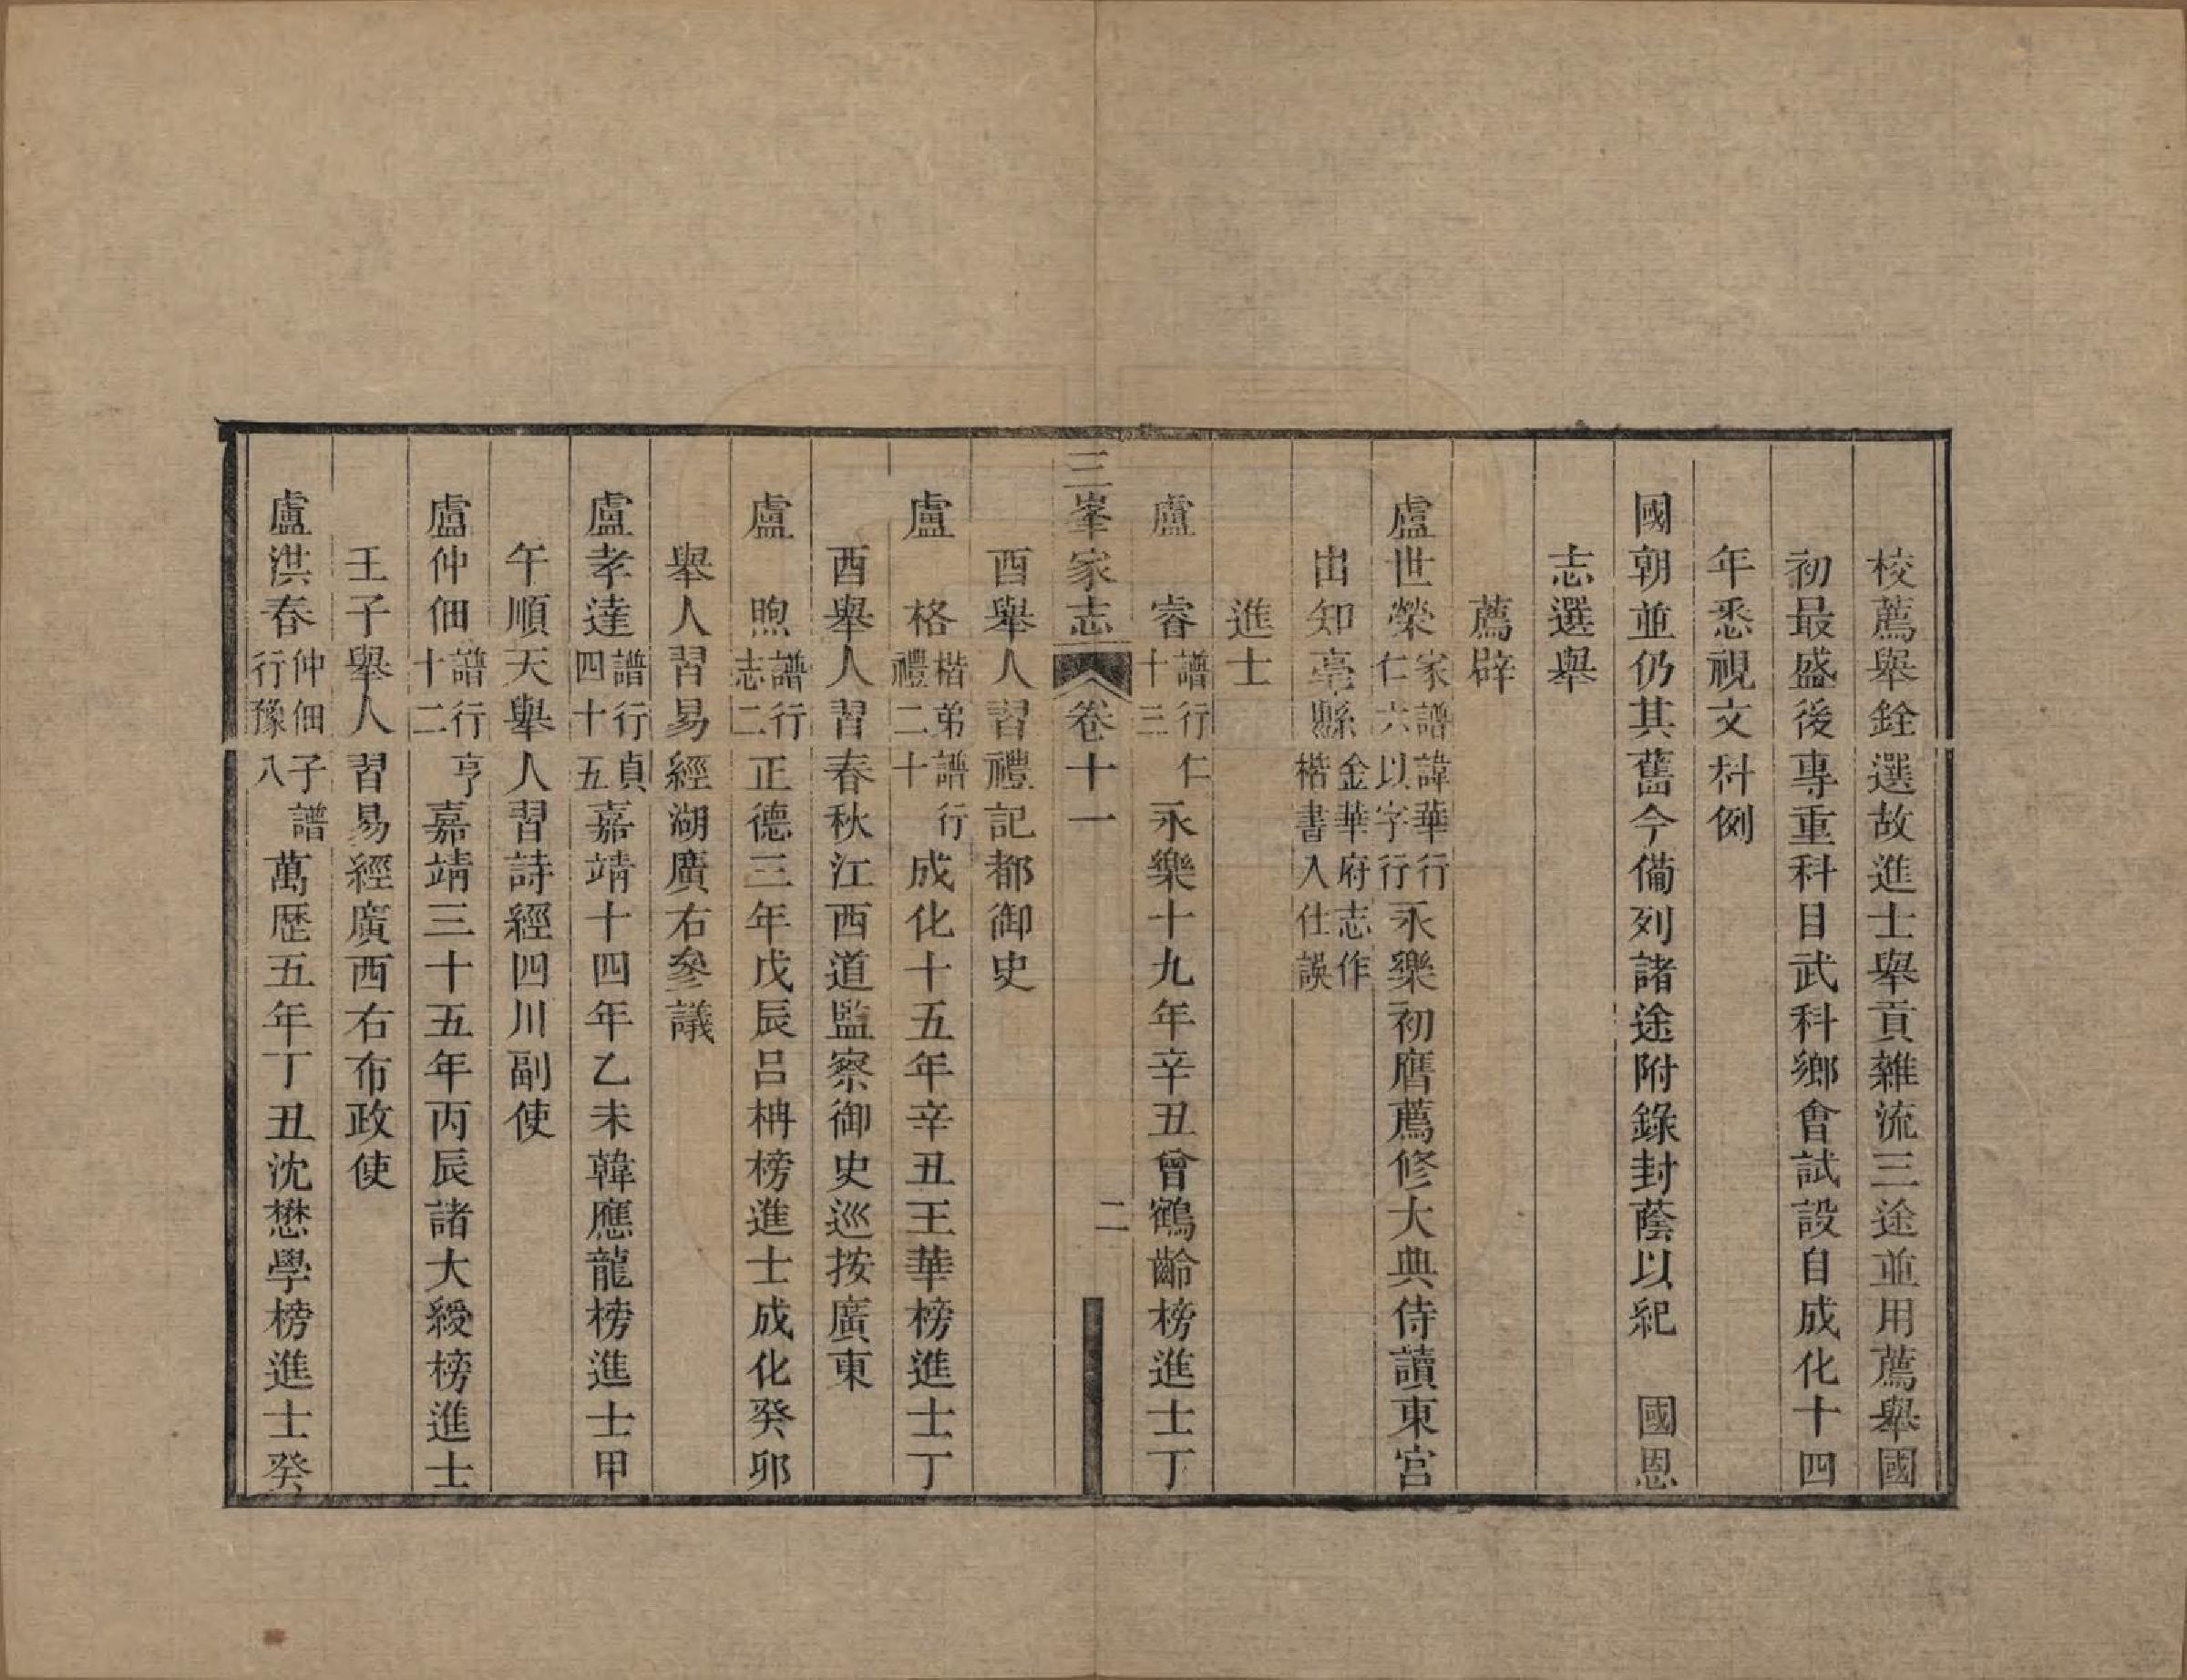 校薦舉銓選故進士舉貢雜流三途並用薦舉國
初最盛後專重科目武科鄉會試設自成化十四
年悉視文科例
國朝並仍其舊今備列諸途附錄封蔭以紀　國恩
志選舉
薦辟
盧世榮家譜諱華行仁六以字行行永樂初膺薦修大典侍讀東宮
出知亳縣金華府志作楷書入仕誤
進士
盧　睿譜行仁十三永樂十九年辛丑曾鶴齡榜進士丁
三峯家志　卷十一　二
酉舉人習禮記都御史
盧　格楷弟譜行禮二十成化十五年辛丑王華榜進士丁
酉舉人習春秋江西道監察御史巡按廣東
盧　煦譜行志二正德三年戊辰呂柟榜進士成化癸卯
舉人習易經湖廣右參議
盧孝達譜行貞四十五嘉靖十四年乙未韓應龍榜進士甲
午順天舉人習詩經四川副使
盧仲佃譜行亨十二嘉靖三十五年丙辰諸大綬榜進士
壬子舉人習易經廣西右布政使
盧洪春仲佃子譜行豫八萬歷五年丁丑沈懋學榜進士癸